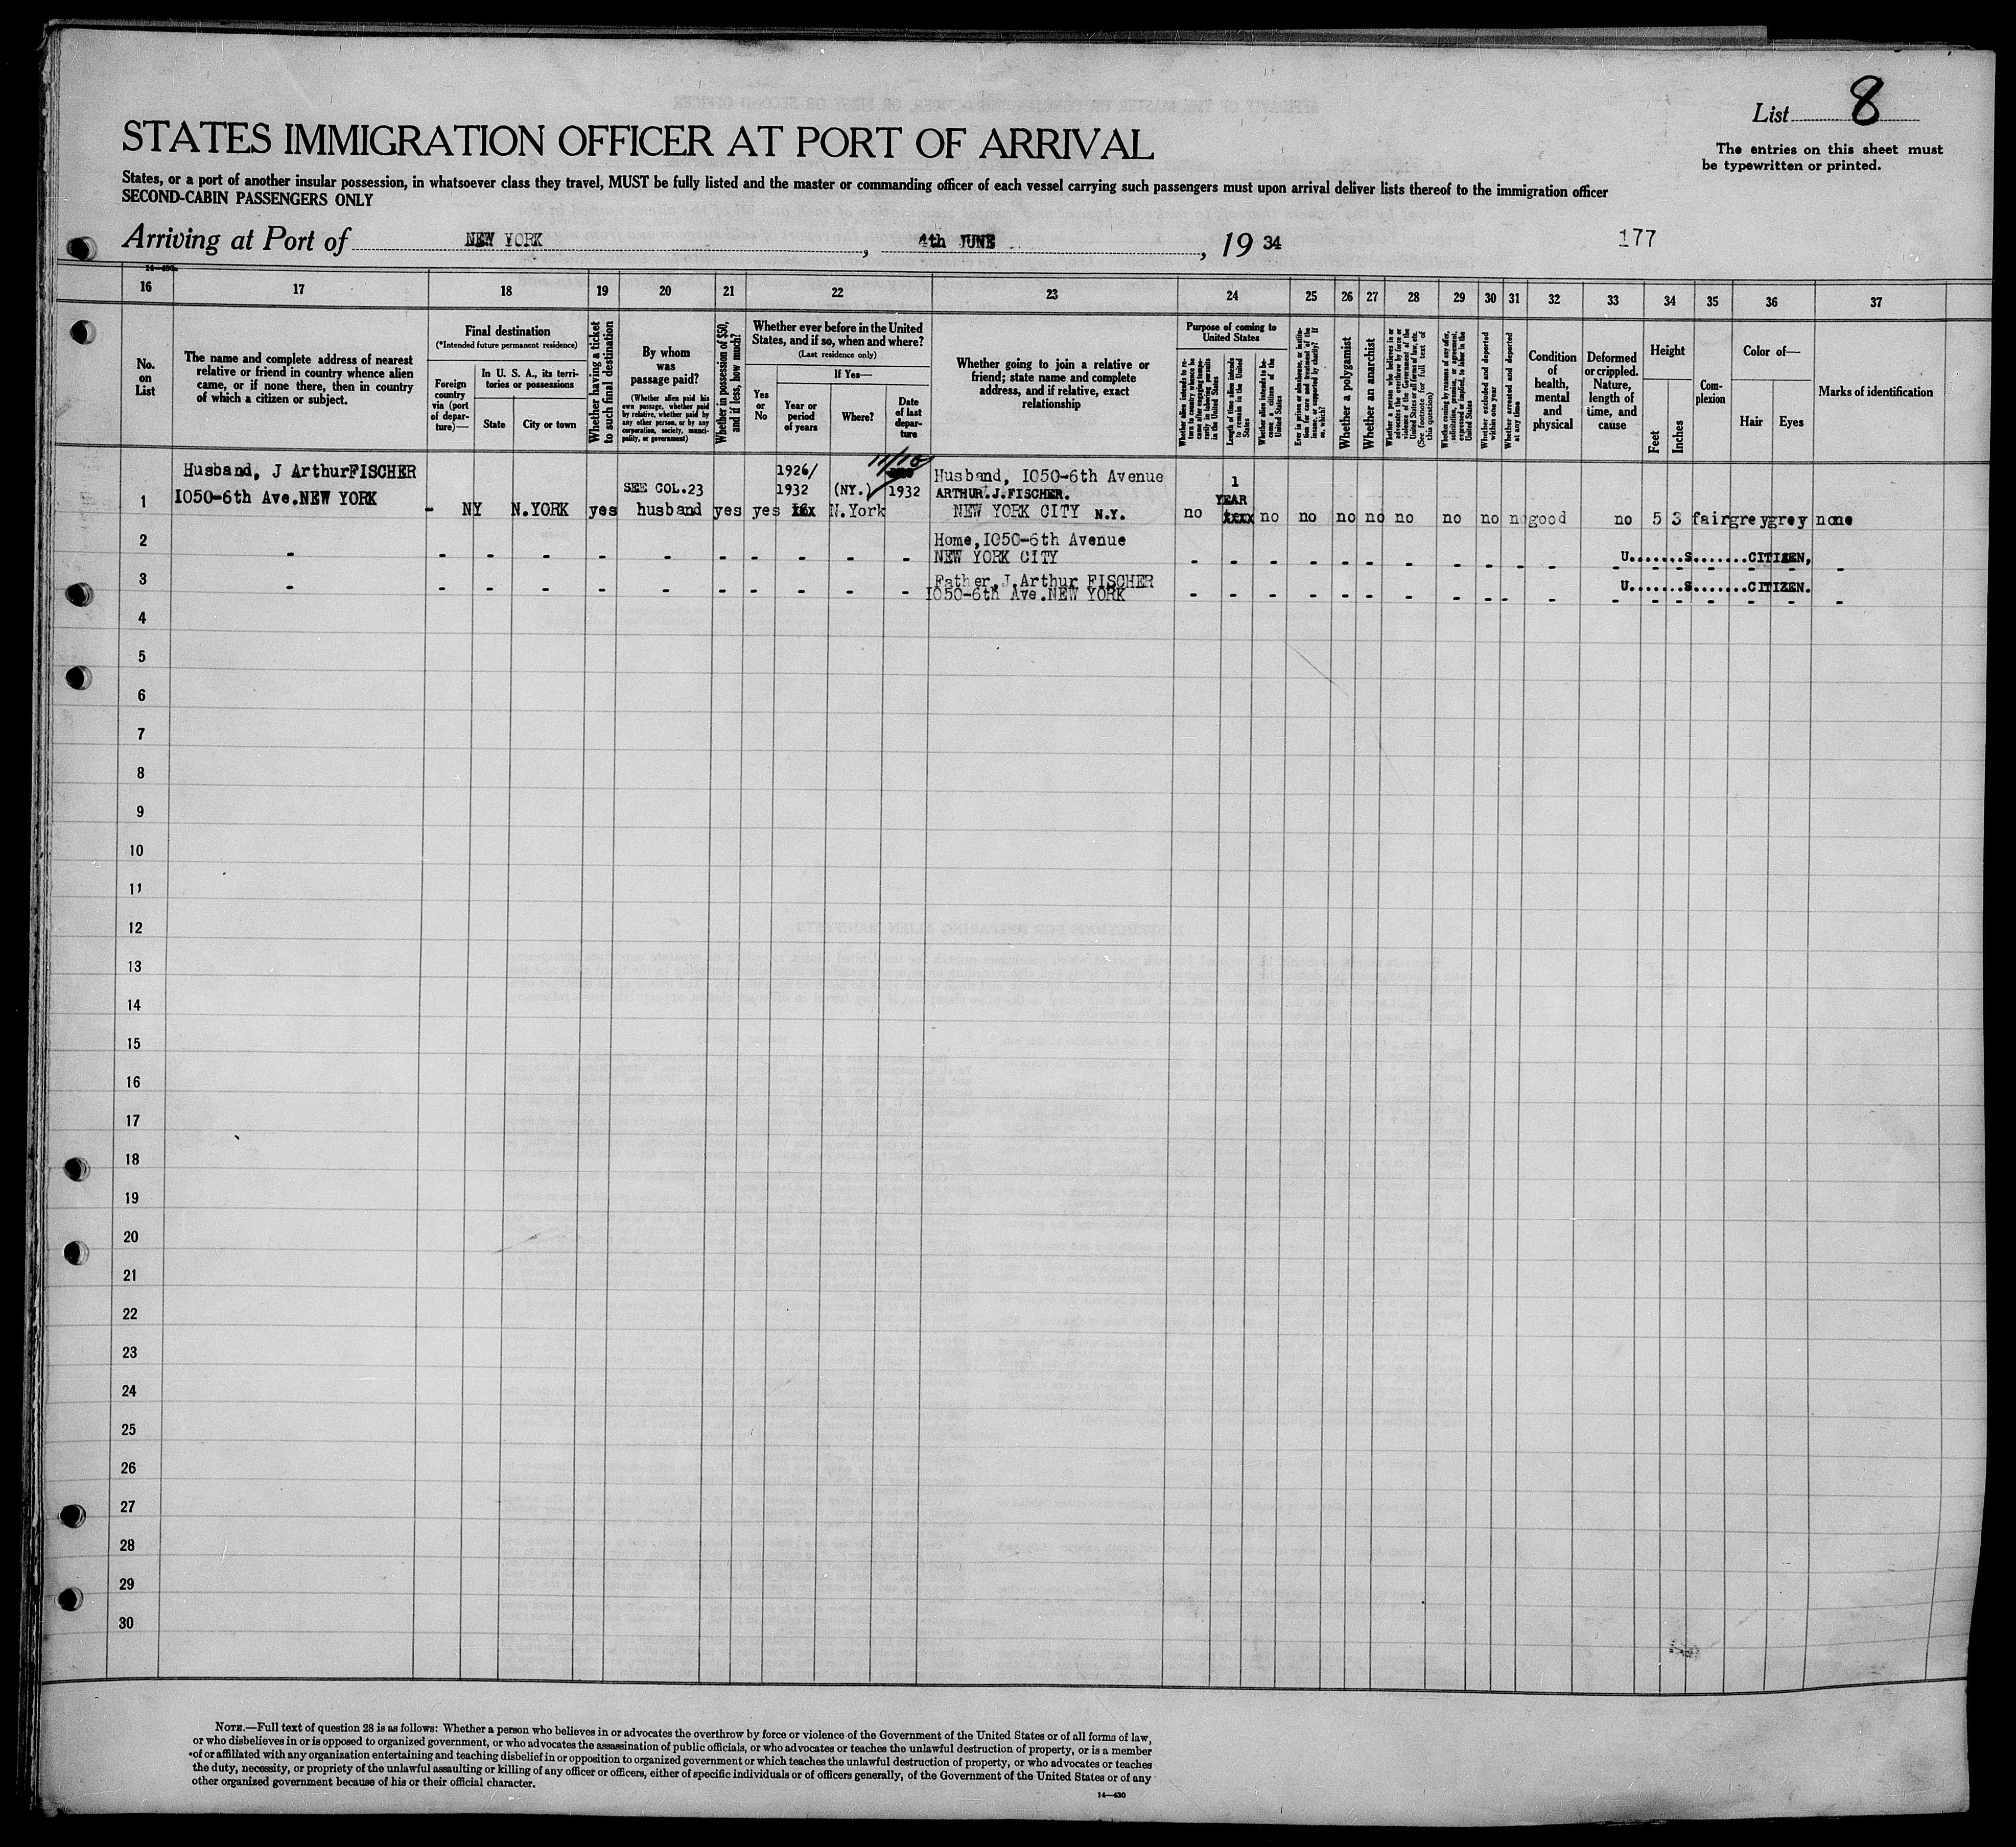 List 8
The entries on this sheet must
be typewritten or printed.
STATES IMMIGRATION OFFICER AT PORT OF ARRIVAL
States, or a port of another insular possession, in whatsoever class they travel, MUST be fully listed and the master or commanding officer of each vessel carrying such passengers must upon arrival deliver lists thereof to the immigration officer
SECOND-CABIN PASSENGERS ONLY
Arriving at Port of NEW YORK, 4th JUNE, 19 34
177
16 17 18 19 20 21 22 23 24 25 26 27 28 29 30 31 32 33 34 35 36 37
No.
on
List
The name and complete address of nearest
relative or friend in country whence alien
came, or if none there, then in country
of which a citizen or subject.
Final destination
(*Intended future permanent residence)
Foreign
country
via (port
of depar-
ture)—
In U. S. A., its terri-
tories or possessions
State
City or town
Whether having a ticket
to such final destination
By whom
was
passage paid?
(Whether alien paid his
own passage, whether paid
by relative, whether paid by
any other person, or by any
corporation, society, munici-
pality, or government)
Whether in possession of $50,
and if less, how much?
Whether ever before in the United
States, and if so, when and where?
(Last residence only)
Yes
or
No
If Yes—
Year or
period
of years
Where?
Date
of last
depar-
ture
Whether going to join a relative or
friend; state name and complete
address, and if relative, exact
relationship
Purpose of coming to
United States
Whether alien intends to re-
turn to country whence he
came after engaging tempo-
rarily in laboring pursuits
in the United States
Length of time alien intends
to remain in the United
States
Whether alien intends to be-
come a citizen of the
United States
Ever in prison or almshouse, or institu-
tion for care and treatment of the
insane, or supported by charity? If
so, which?
Whether a polygamist
Whether an anarchist
Whether a person who believes in or
advocates the overthrow by force or
violence of the Government of the
United States or all forms of law, etc.
(See footnote for full text of
this question)
Whether coming by reason of any offer,
solicitation, promise, or agreement,
expressed or implied, to labor in the
United States
Whether excluded and deported
within one year
Whether arrested and deported
at any time
Condition
of
health,
mental
and
physical
Deformed
or crippled.
Nature,
length of
time, and
cause
Height
Feet
Inches
Com-
plexion
Color of—
Hair
Eyes
Marks of identification
Husband, J ArthurFISCHER
1050-6th Ave.NEW YORK
1 - NY N.YORK yes
SEE COL.23
husband yes yes
1926/
1932
(NY.)
N.York
11/10
1932
Husband, 1050-6th Avenue
ARTHUR.J.FISCHER.
NEW YORK CITY N.Y.
no
1
YEAR
xxxx no no no no no no no no good no 5 3 fair grey grey none
2 - - - - - - - - - - -
Home, 1050-6th Avenue
NEW YORK CITY
- - - - - - - - - - -
U.......S.......CITIZEN,
3 - - - - - - - - - - -
Father, J.Arthur FISCHER
1050-6th Ave.NEW YORK
- - - - - - - - - - -
U.......S.......CITIZEN.
4
5
6
7
8
9
10
11
12
13
14
15
16
17
18
19
20
21
22
23
24
25
26
27
28
29
30
NOTE.—Full text of question 28 is as follows: Whether a person who believes in or advocates the overthrow by force or violence of the Government of the United States or of all forms of law,
or who disbelieves in or is opposed to organized government, or who advocates the assassination of public officials, or who advocates or teaches the unlawful destruction of property, or is a member
of or affiliated with any organization entertaining and teaching disbelief in or opposition to organized government or which teaches the unlawful destruction of property, or who advocates or teaches
the duty, necessity, or propriety of the unlawful assaulting or killing of any officer or officers, either of specific individuals or of officers generally, of the Government of the United States or of any
other organized government because of his or their official character.
14—430